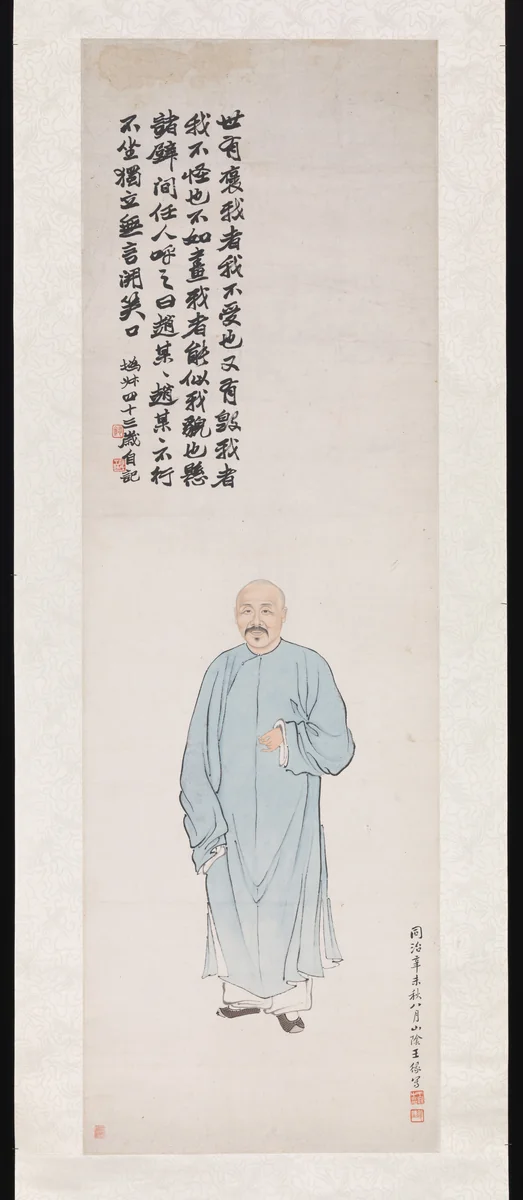 世有褒我者我不受也又有毀我者
我不怪也不如畫我者能似我貌也懸
諸壁間任人呼之曰趙某〻趙某〻不行
不坐獨立無言開笑口
撝叔四十三歲自記
同治辛未秋八月山陰王緣寫